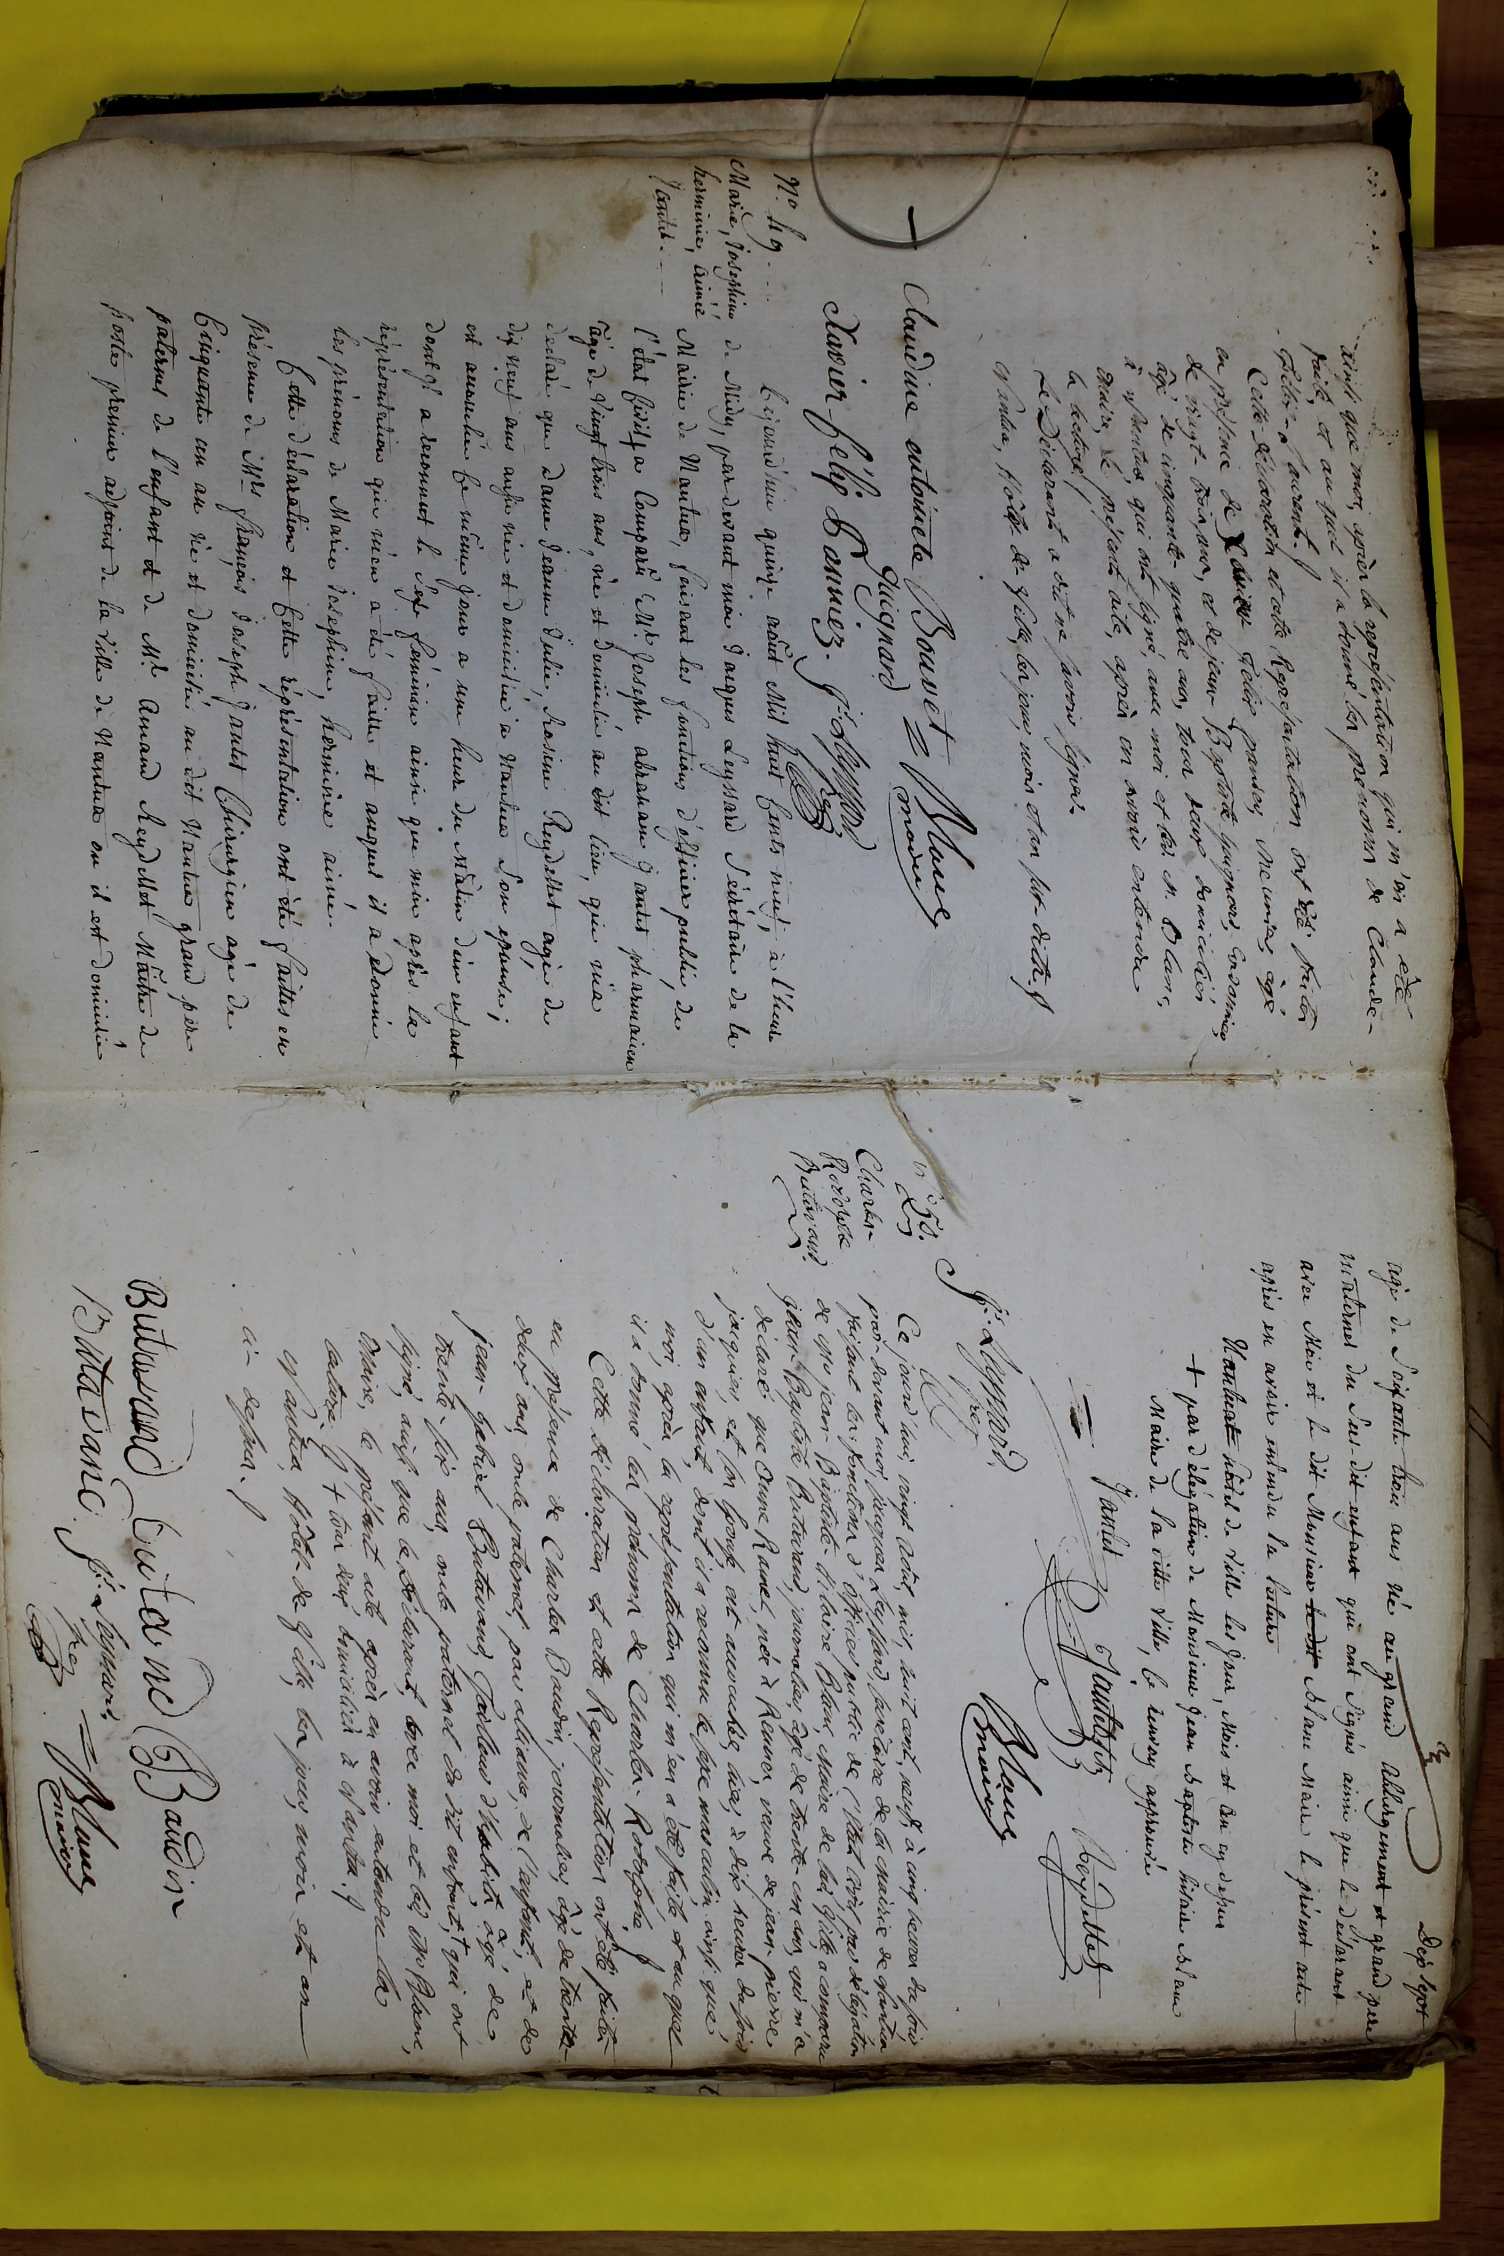 ainsi que moi, après la représentation qui m'en a été
faite et au quel il a donné les prénoms de Claude-
Félix-Laurent.
Cette déclaration et cette Représentation ont été faites
en présence de Xavier Félix pannez, âgé
de vingt-trois ans, et de jean Baptiste guignard, Cordonnier,
âgé de cinquante quatre ans, tous deux domiciliés
à Nantua, qui ont signé, avec moi et led. Sr. Blanc,
maire, le présent acte, après en avoir entendu
la lecture.
Le Déclarant a dit ne savoir signer.
Nantua, hôtel de Ville, les jour, mois et an sus-dits.
Claudine antoinete Bouvet Blanc
Guignard maire
Xavier félix Pannez. Js. Leyssard
N.o 49
Marie, Josephine
herminie, aimée
Jantet
Cejourd'hui quinze août Mil huit Cents neuf, à l'heure
de Midy, par devant moi Jacques Leyssard Sécrétaire de la
Mairie de Nantua, faisant les fonctions d'officier public, de
l'état Civil, a Comparu Mr. Joseph abraham Jantet pharmacien
âgé de Vingt trois ans, né et Domicilié au dit lieu, qui m'a
déclaré que dame Jeanne Julie, Rosine Reydellet agée de
dix neuf ans aussi née et domiciliée à Nantua Son epouse;
est accouchée Ce même jour a une heure du Matin d'un enfant
dont il a reconnut le Sexe féminin ainsi que moi après la
réprésentation qui m'en a été faitte et auquel il a donné
les prénoms de Marie Josephine, herminie aimée.
Cette déclaration et Cette réprésentation ont été faittes en
présence de Mrs françois Joseph Jantet Chirurgien agé de
Cinquante un an né et domicilié au dit Nantua grand père
paternel de l'enfant et de Mr. Amand Reydellet Maître de
poste premier adjoint de la Ville de Nantua ou il est domicilié
Dix Sept
agé de Soixante trois ans né au grand Abbergement et grand pere
maternel du Sus-dit enfant qui ont Signés ainsi que le déclarant
avec Moi et le dit Monsieur Blanc Maire le présent acte
après en avoir entendu la lecture
Nantua hôtel de Ville les Jour, Mois et an cy dessus
+ par délégation de Monsieur Jean Baptiste hilaire Blanc
Maire de la ditte Ville, le renvoy approuvé
Jantet Jantet fils Reydellet
Js. Leyssard, Blanc
maire
n.o 50.
Charles-
Rodolphe
Butavand.
Ce jourd'hui, vingt août, mil, huit cent, neuf, à cinq heures du soir
par-devant moi, jacques Leyssard, secrétaire de la mairie de Nantua
faisant les fonctions d'officier public de l'état civil, par délégation
de mr jean-Baptiste-hilaire Blanc, Maire de lad. Ville, a comparu
jean-Baptiste Butavand, journalier, âgé de trente-un ans, qui m'a
déclaré que Anne Ramel, née à Rennes, veuve de jean-pierre
jacquier, et son épouse, est accouchée, hier, à dix heures du soir
d'un enfant, dont il a reconnu le sexe masculin, ainsi que
moi, après la représentation qui m'en a été faite, et au quel
il a donné les prénoms de Charles-Rodolphe.
Cette déclaration et cette Représentation ont été faites
en présence de Charles Baudin journalier, âgé de trente
deux ans, oncle paternel, par alliance, de l'enfant, et de
jean-gabriel Butavand, Tailleur d'habits, âgé de
trente-six ans, oncle paternel du dit enfant, + qui ont
signé, ainsi que le déclarant, avec moi et led. mr Blanc,
Maire, le présent acte après en avoir entendu la
lecture. + tous deux domiciliés à Nantua.
Nantua, hôtel de Ville, les jour, mois et an
ci-dessus.
Butavand Baudin
Butavand. Js. Leyssard Blanc
maire